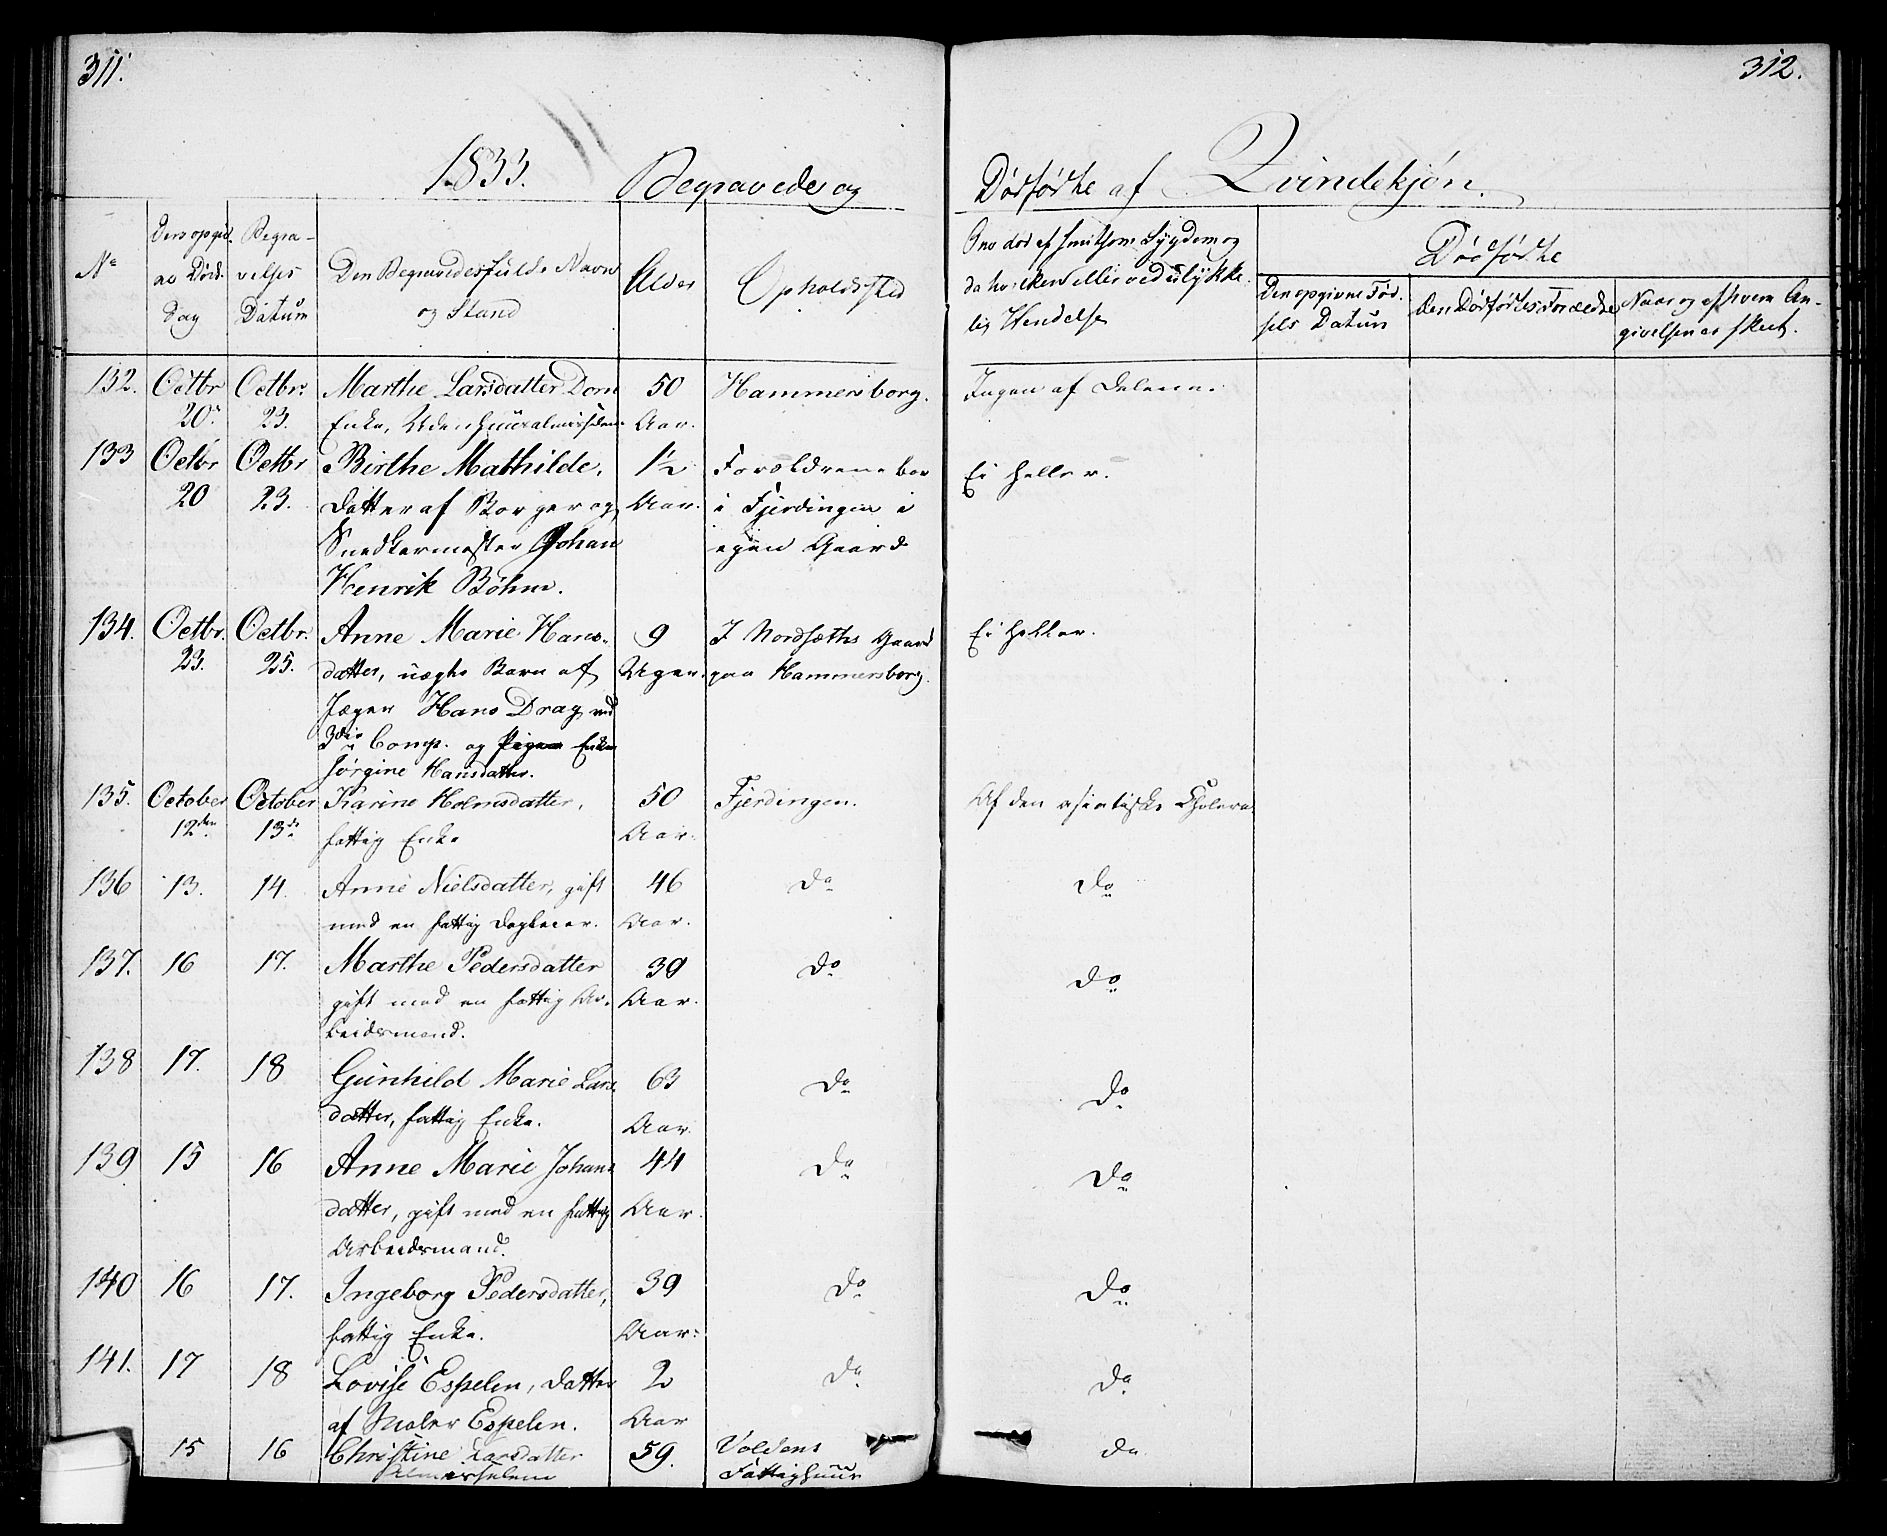 311.
312.
1833. Begravede og Dødfødte af Qvindekjøn.
No
Den opgivne Døds Dag
Begravelses Datum
Den Begravedes fulde Navn og Stand
Alder
Opholdssted
Om død af smitsom Sygdom og da hvilken eller ved ulykkelig Hendelse
Dødfødte
Den opgivne Fødsels Datum
Den Dødfødtes Forældre
Naar og af hvem Angivelsen er skeet.
132. Octbr 20. Octbr. 23. Marthe Larsdatter Dorn 50 Aar. Hammersborg. Ingen af Delene.
Enke, Udenhuusalmisselem
133 Octbr 20 Octbr 23. Birthe Mathilde, 1½ Aar. Forældrene boe Ei heller.
Datter af Borger og i Fjerdingen i
Snedkermester Johan egen Gaard
Henrik Böhm.
134. Octbr. 23. Octbr. 25. Anne Marie Hans- 9 Uger. I Nordsæths Gaard Ei heller.
datter, uægte Barn af paa Hammersborg.
Jæger Hans Drag ved
3die Comp. og Pigen Enken
Jørgine Hansdatter.
135. October 12den October 13de Karine Holmsdatter, 50 Aar. Fjerdingen. Af den asiatiske Cholera.
fattig Enke
136 13. 14. Anne Nielsdatter, gift 46 Aar. Do Do
med en fattig Dagleier.
137. 16 17. Marthe Pedersdatter 39 Aar. Do Do
gift med en fattig Ar-
beidsmand.
138 17. 18 Gunhild Marie Lars 63 Aar. Do Do
datter, fattig Enke.
139 15 16 Anne Marie Johans 44 Aar. Do Do
datter, gift med en fattig
Arbeidsmand.
140 16 17. Ingeborg Pedersdatter, 39 Aar. Do Do
fattig Enke.
141. 17 18 Lovise Espelin, Datter 2 Aar Do Do
af Maler Espelin.
15 16 Christine Larsdatter 59. Voldens Do
Almisselem Fattighuus